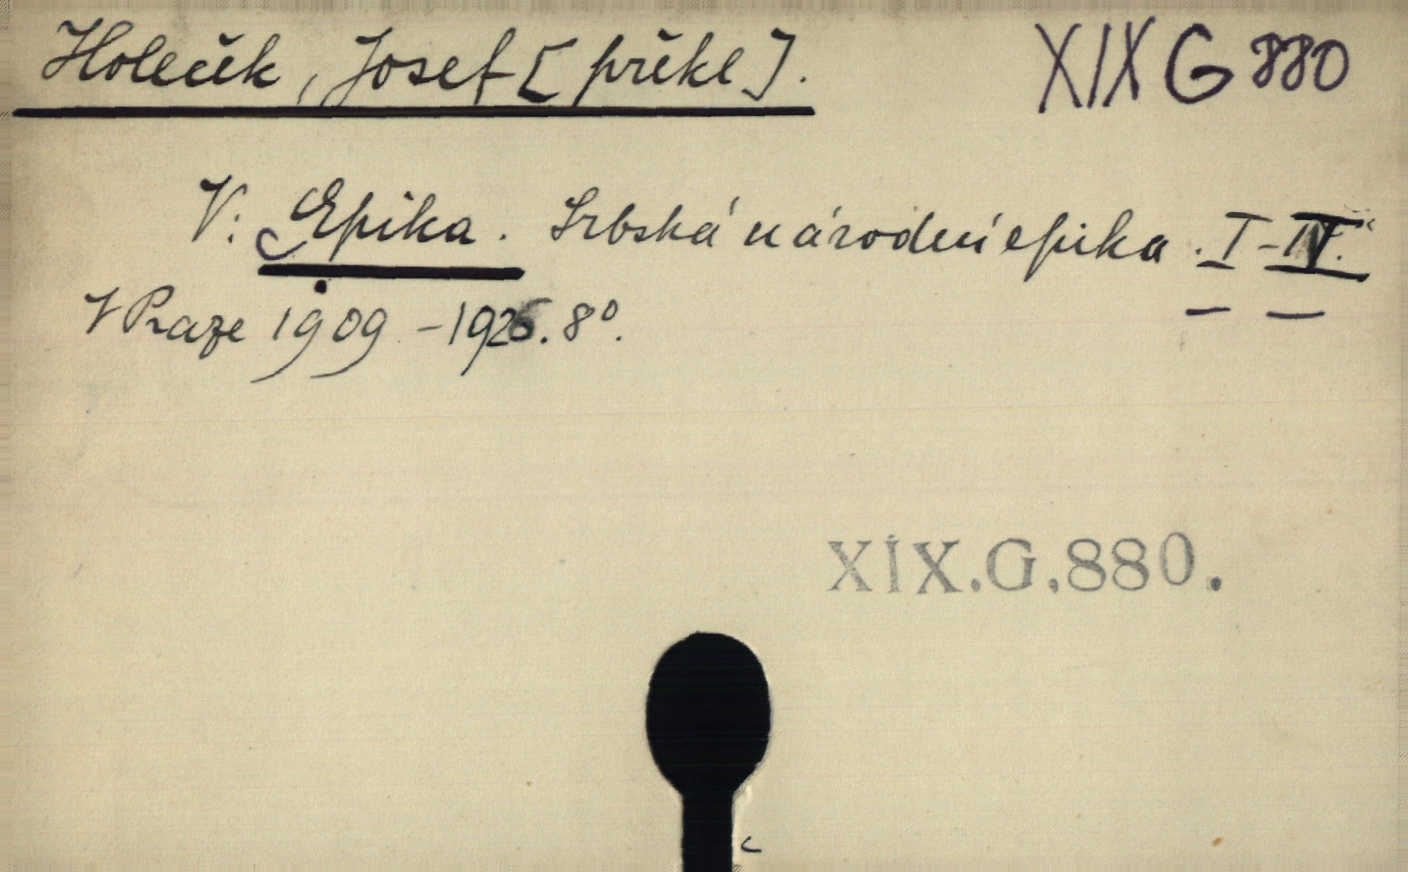 Holeček, Josef [překl]. XIX G 880
V: Epika. Srbská národní epika. I-IV.
V Praze 1909-1926. 8°.
XIX.G.880.